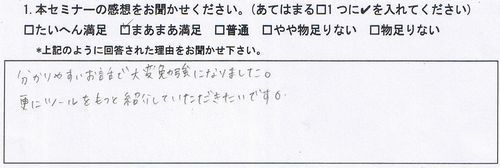 1. 本セミナーの感想をお聞かせください。（あてはまる□1つに✔を入れてください）
□たいへん満足 ☑まあまあ満足 □普通 □やや物足りない □物足りない
*上記のように回答された理由をお聞かせ下さい。
分かりやすいお話で大変勉強になりました。
更にツールをもっと紹介していただきたいです。